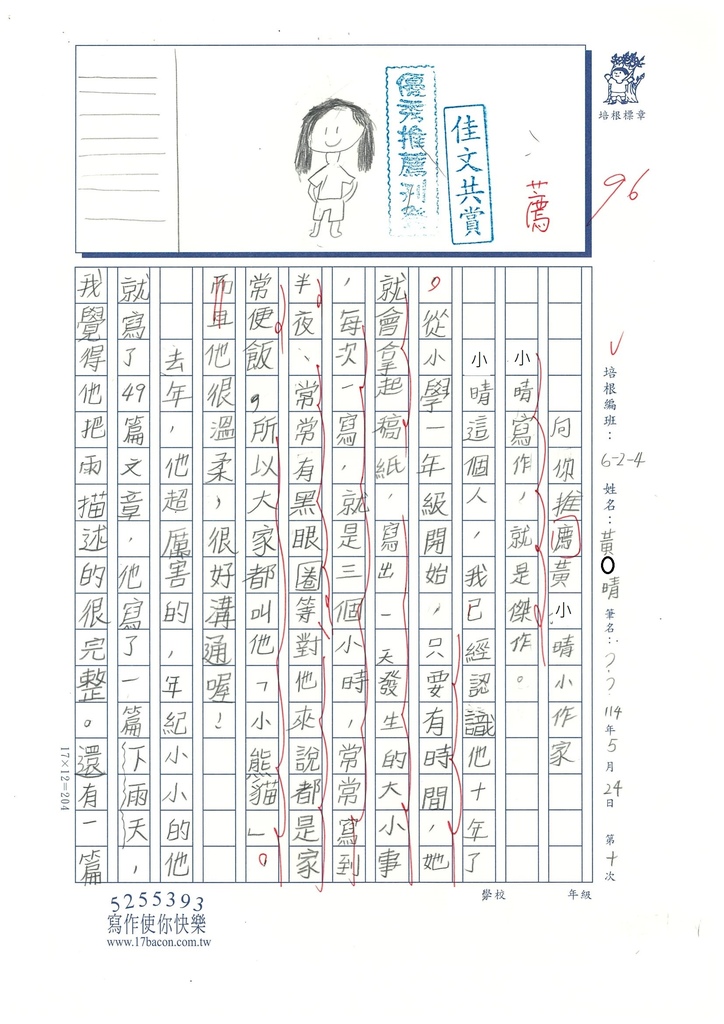 培根標章
96
優秀推薦刊
佳文共賞
薦
培根編班：6-2-4 姓名：黃O晴 筆名：?? 114年5月24日 第十次
學校 年級
向你推薦黃小晴小作家
小晴寫作，就是傑作。
小晴這個人，我已經認識他十年了
。從小學一年級開始，只要有時間，她
就會拿起稿紙，寫出一天發生的大小事
，每次一寫，就是三個小時，常常寫到
半夜、常常有黑眼圈等對他來說都是家
常便飯，所以大家都叫他「小熊貓」。
而且他很溫柔，很好溝通喔！
去年，他超厲害的，年紀小小的他
就寫了49篇文章，他寫了一篇下雨天，
我覺得他把雨描述的很完整。還有一篇
17×12=204
5255393
寫作使你快樂
www.17bacon.com.tw